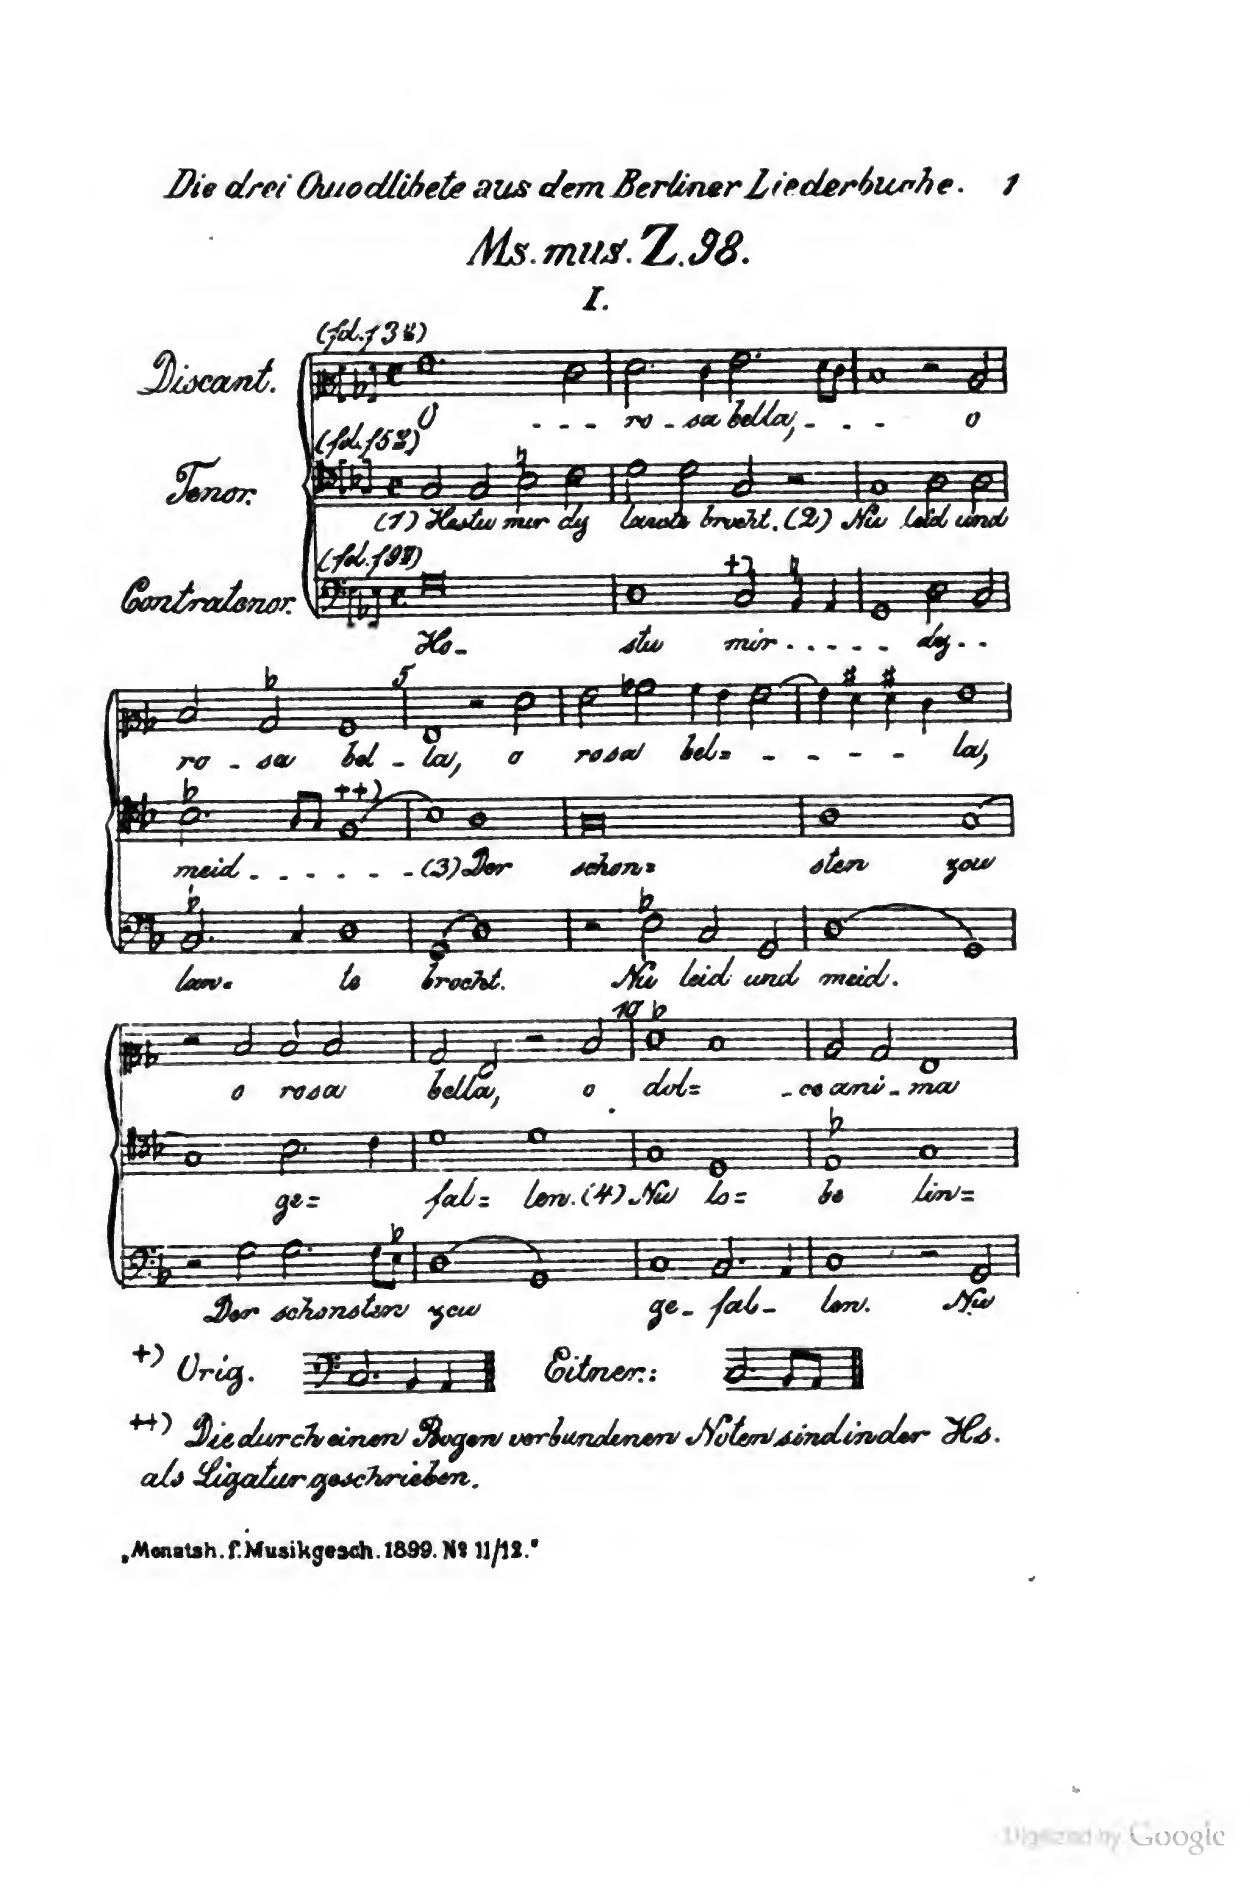 Die drei Quodlibete aus dem Berliner Liederbuche. 1
Ms. mus. Z. 98.
I.
Discant.
O - - - ro - sa bella, - - - o
Tenor.
(1) Hastu mir dy laute brocht. (2) Nu leid und
Contratenor.
Ha- stu mir - - - - - dy - -
5
ro - sa bel - la, o rosa bel= - - - - la,
++)
meid - - - - - - (3) Der schon= sten zou
lau= te brocht. Nu leid und meid.
10
o rosa bella, o dol= - ce ani - ma
ge= fal= len. (4) Nu lo= be lin=
Der schonsten zcu ge- fal- len. Nu
+) Orig. Eitner.:
++) Die durch einen Bogen verbundenen Noten sind in der Hs.
als Ligatur geschrieben.
„Monatsh. f. Musikgesch. 1899. No 11/12."
Digitized by Google